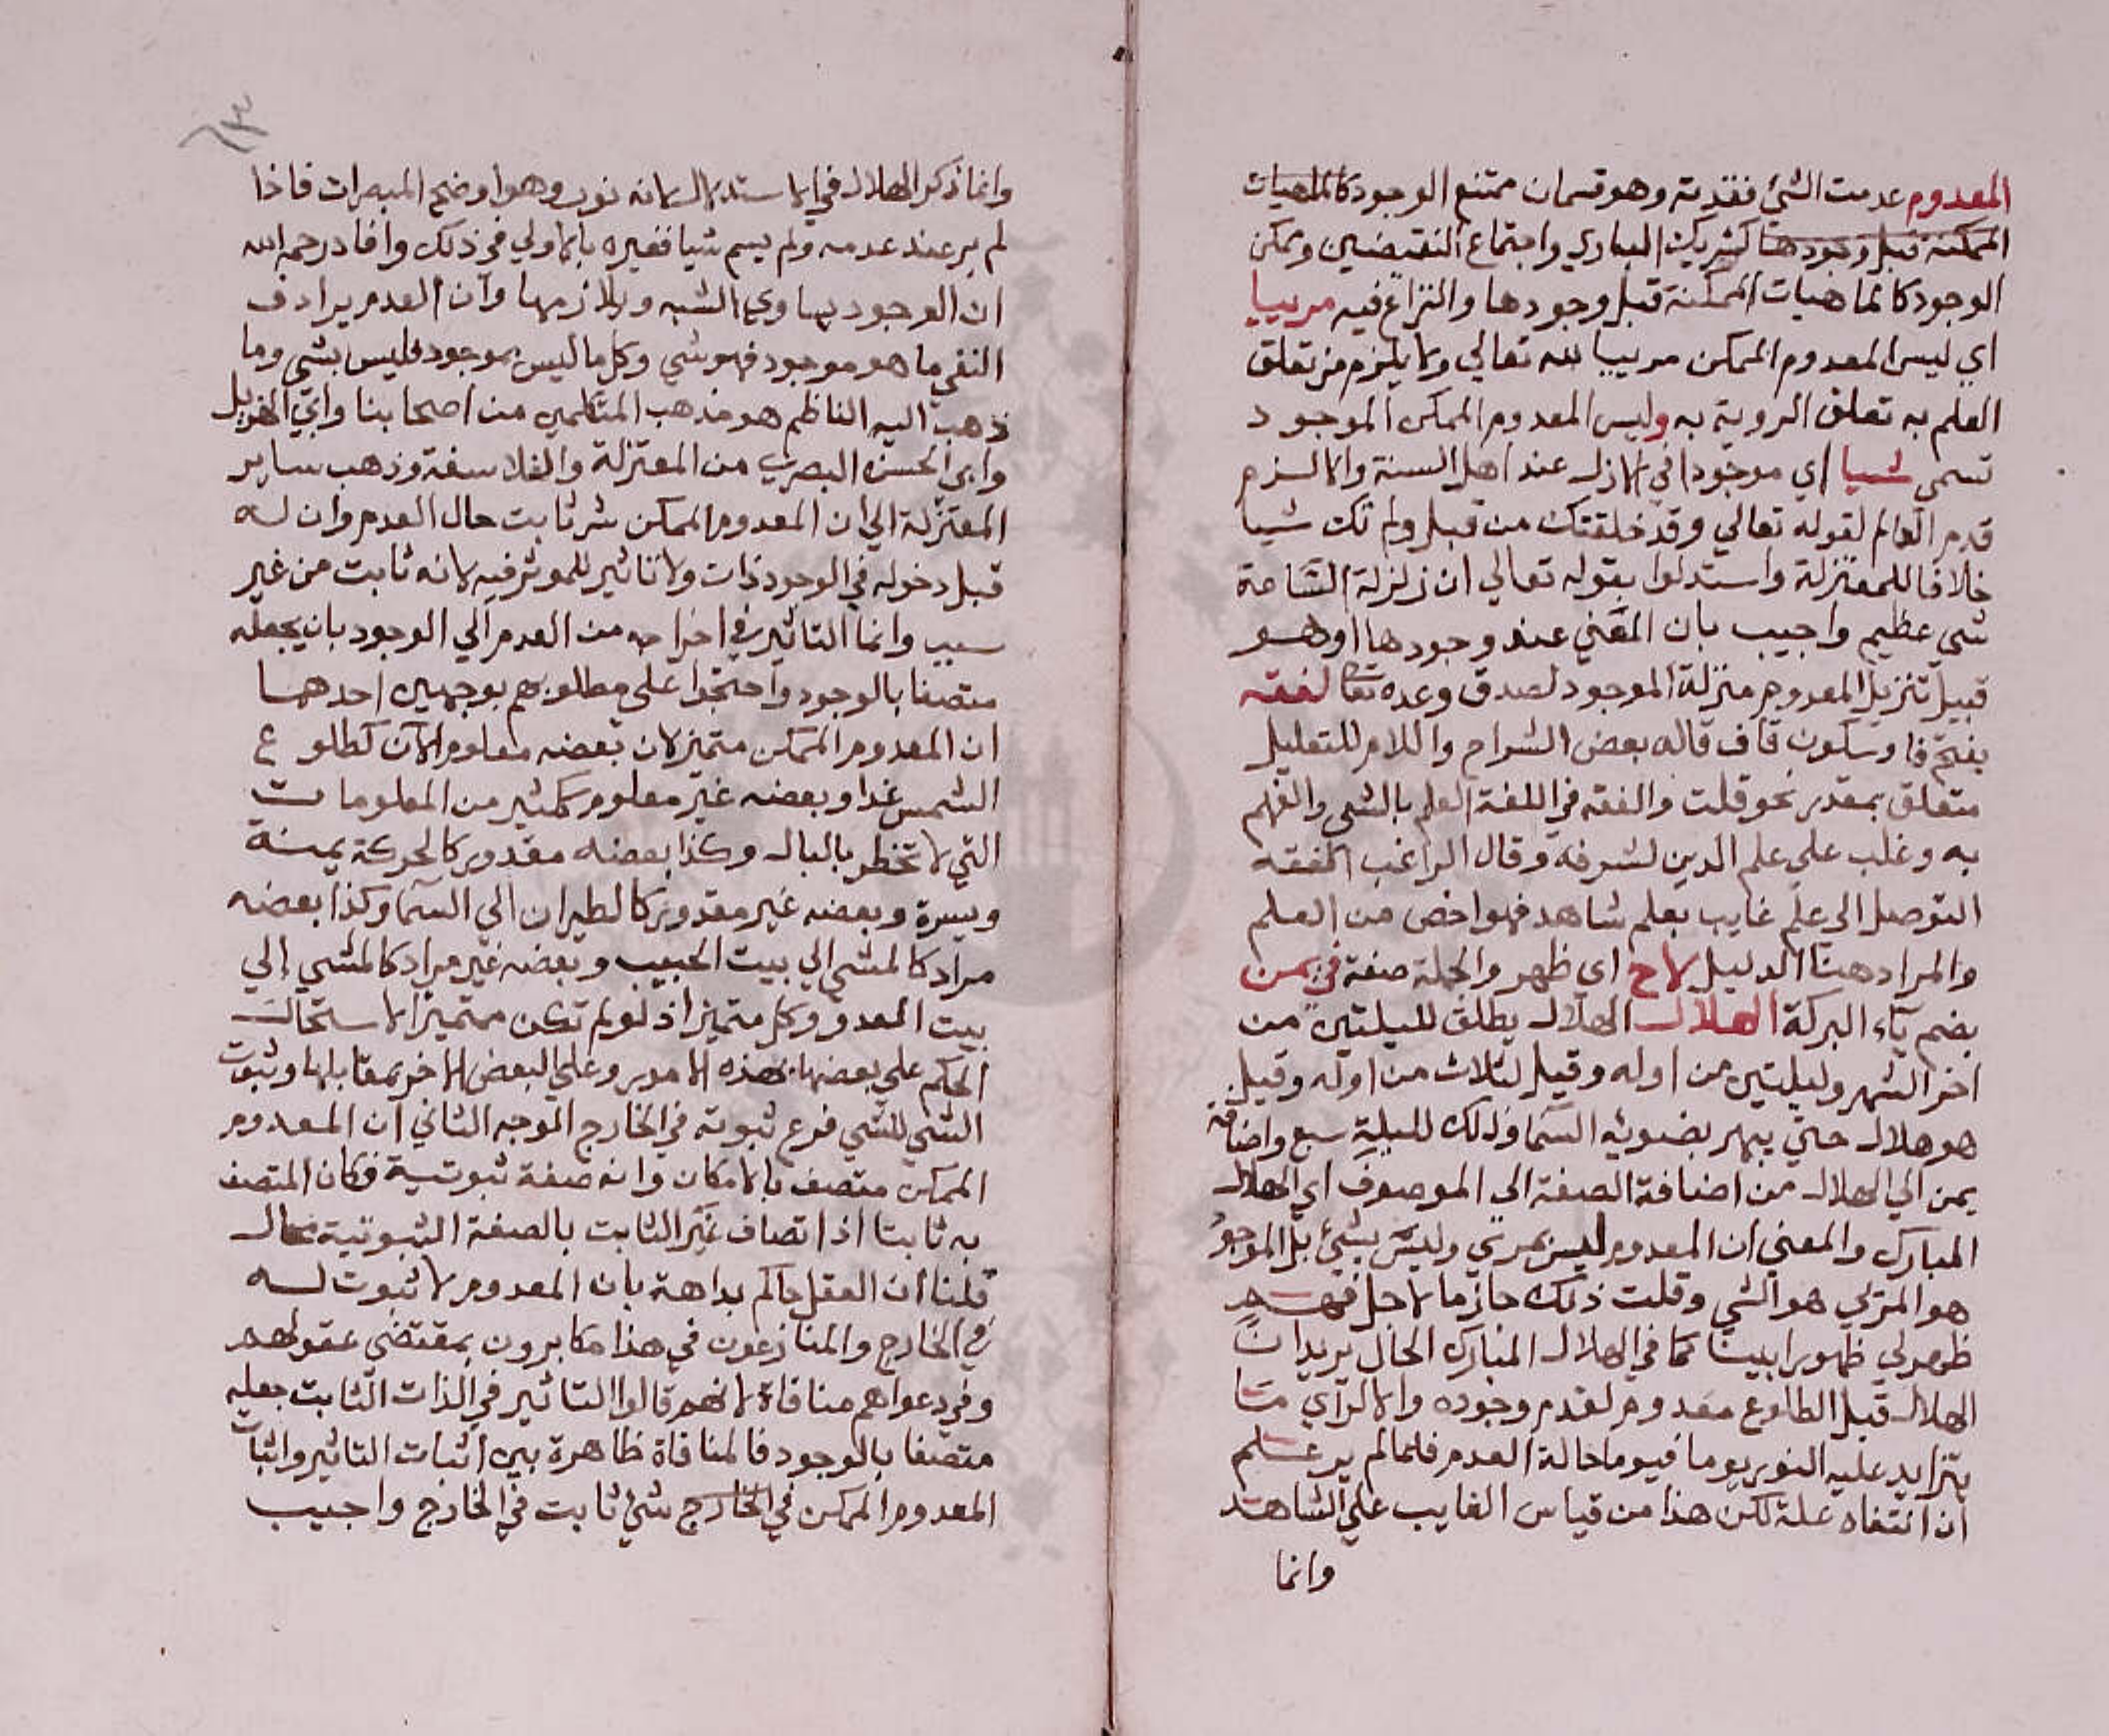 المعدوم عدمت الشئ فقدته وهو قسمان ممتنع الوجود كالماهيات
الممكنة قبل وجودها كشريك الباري واجتماع النقيضين وممكن
الوجود كالماهيات الممكنة قبل وجودها والنزاع فيه مرييا
اي ليس المعدوم الممكن مرييا لله تعالي ولا يلزم من تعلق
العلم به تعلق الروية به وليس المعدوم الممكن الموجود
تسمي شيا اي موجودا في الازل عند اهل السنة والا لزم
قدم العالم لقوله تعالي وقد خلقتك من قبل ولم تك شيا
خلافا للمعتزلة واستدلوا بقوله تعالي ان زلزلة الساعة
شي عظيم واجيب بان المعني عند وجودها او هو
قبيل تنزيل المعدوم منزلة الموجود لصدق وعده تعا لفقه
بفتح فا وسكون قاف قاله بعض الشراح واللام للتعليل
متعلق بمقدر نحو قلت والفقه في اللغة العلم بالشي والفهم
به وغلب علي علم الدين لشرفه وقال الراغب الفقه
التوصل الي علم غايب بعلم شاهد فهو اخص من العلم
والمراد هنا الدليل لاح اي ظهر والجملة صفة في يمن
بضم ياء البركة الهلال الهلال يطلق لليلتين من
اخر الشهر وليلتين من اوله وقيل لثلاث من اوله وقيل
هو هلال حتي يبهر بضوئه السما وذلك لليلة سبع واضافة
يمن الي الهلال من اضافة الصفة الي الموصوف اي الهلال
المبارك والمعني ان المعدوم ليس بمرئي وليس بشئ بل الموجود
هو المرئي هو الشي وقلت ذلك جازما لاجل فهم
ظهر لي ظهورا بينا كما في الهلال المبارك الحال يريد ان
الهلال قبل الطلوع معدوم لعدم وجوده والا لراي متا
يتزايد عليه النور يوما فيوما حالة العدم فلما لم ير علم
ان انتفاه علة لكن هذا من قياس الغايب علي الشاهد
وانما
وانما ذكر الهلال في الاستدلال لانه نور وهو اوضح المبصرات فاذا
لم ير عند عدمه ولم يسم شيا فغيره بالاولي في ذلك وافاد رحمه الله
ان الوجود يساوي الشيه ويلازمها وان العدم يرادف
النفي ما هو موجود فهو شي وكل ما ليس بموجود فليس بشي وما
ذهب اليه الناظم هو مذهب المتكلمين من اصحابنا وابي الهزيل
وابي الحسن البصري من المعتزلة والفلاسفة وذهب ساير
المعتزلة الي ان المعدوم الممكن شر ثابت حال العدم وان له
قبل دخوله في الوجود ذات ولا تاثير للموثر فيه لانه ثابت من غير
سبب وانما التاثير في اخراجه من العدم الي الوجود بان يجعله
متصفا بالوجود واحتجوا علي مطلوبهم بوجهين احدهما
ان المعدوم الممكن متميز لان بعضه معلوم الان كطلوع
الشمس غدا وبعضه غير معلوم ككثير من المعلومات
التي لا تخطر بالبال وكذا بعضه مقدور كالحركة يمنة
ويسرة وبعضه غير مقدور كالطيران الي السما وكذا بعضه
مراد كالمشي الي بيت الحبيب وبعضه غير مراد كالمشي الي
بيت العدو وكل متميز اذ لو لم تكن متميزا لاستحال
الحكم علي بعضها بهذه الامور وعلي البعض الاخر بمقابلها وثبوت
الشي للشي فرع ثبوته في الخارج الوجه الثاني ان المعدوم
الممكن متصف بالامكان وانه صفة ثبوتية فكان المتصف
به ثابتا اذ اتصاف غير الثابت بالصفة الثبوتية محال
قلنا ان العقل حاكم بداهة بان المعدوم لا ثبوت له
في الخارج والمنازعون في هذا مكابرون بمقتضي عقولهم
وفي دعواهم منافاة لانهم قالوا التاثير في الذات الثابت جعله
متصفا بالوجود فالمنافاة ظاهرة بين اثبات التاثير واثبات
المعدوم الممكن في الخارج شئ ثابت في الخارج واجيب